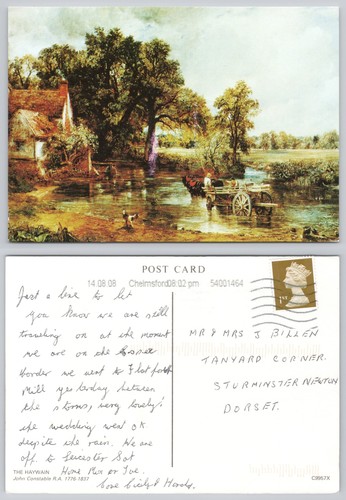 POST CARD
14.08.08 Chelmsford 08:02 pm 54001464
1st
Just a line to let
you know we are still
travelling on at the moment
we are on the Essex
Border we went to Flatford
Mill yesterday between
the storms, very lovely!
the wedding went ok
despite the rain. We are
off to Leicester Sat
Home Mon or Tue.
Love
MR & MRS J BILLEN
TANYARD CORNER.
STURMINSTER NEWTON
DORSET.
THE HAYWAIN
John Constable R.A. 1776-1837